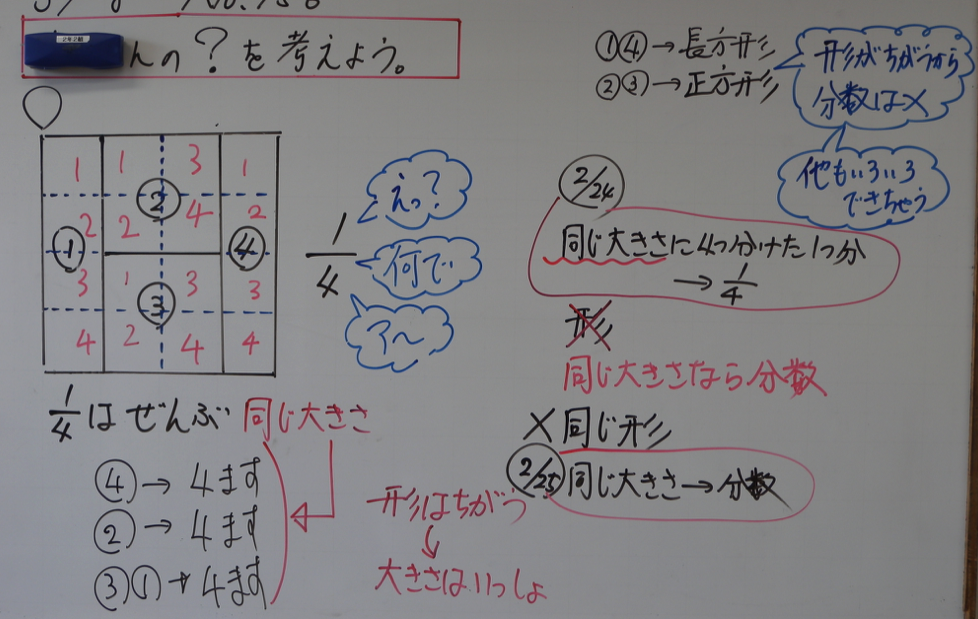 んの?を考えよう。
①④→長方形
②③→正方形
形がちがうから
分数は×
他もいろいろ
できちゃう
1 1 3 1
2 2 ② 4 2
① ④
3 1 ③ 3 3
4 2 4 4
1/4
えっ?
何で
え〜
2/24
同じ大きさに4つ分けた1つ分
→1/4
形
同じ大きさなら分数
×同じ形
2/25 同じ大きさ→分数
1/4はぜんぶ同じ大きさ
④→4ます
②→4ます
③①→4ます
形はちがう
↓
大きさはいっしょ